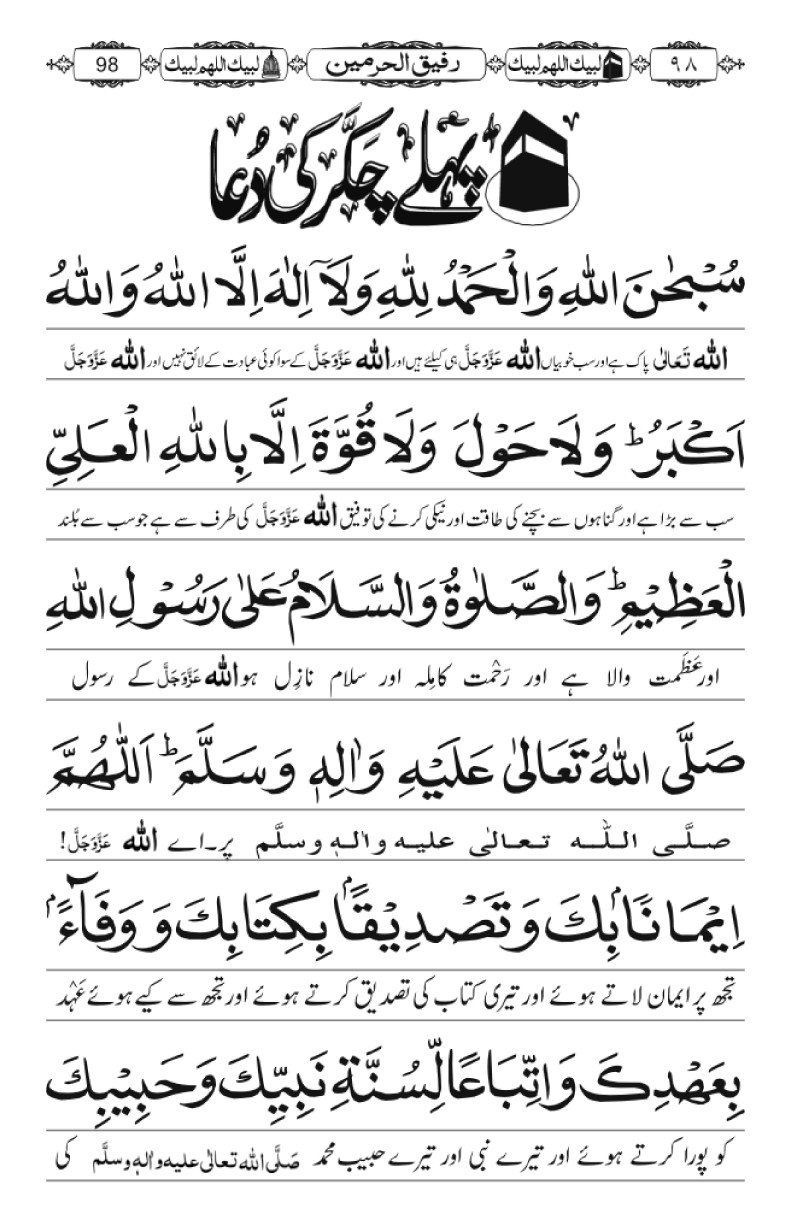 ۹۸ لبيك اللهم لبيك رفيق الحرمين لبيك اللهم لبيك 98
پہلے چکّر کی دُعا
سُبْحٰنَ اللهِ وَالْحَمْدُ لِلّٰهِ وَلَآ اِلٰهَ اِلَّا اللهُ وَاللهُ
الله تَعَالٰی پاک ہے اور سب خوبیاں الله عَزَّوَجَلَّ ہی کیلئے ہیں اور الله عَزَّوَجَلَّ کے سوا کوئی عبادت کے لائق نہیں اور الله عَزَّوَجَلَّ
اَكْبَرُ ؕ وَلَا حَوْلَ وَلَا قُوَّةَ اِلَّا بِاللهِ الْعَلِيِّ
سب سے بڑا ہے اور گناہوں سے بچنے کی طاقت اور نیکی کرنے کی توفیق الله عَزَّوَجَلَّ کی طرف سے ہے جو سب سے بُلند
الْعَظِيْمِ ؕ وَالصَّلٰوةُ وَالسَّلَامُ عَلٰى رَسُوْلِ اللهِ
اور عَظَمت والا ہے اور رَحْمت کامِلہ اور سلام نازِل ہو الله عَزَّوَجَلَّ کے رسول
صَلَّى اللهُ تَعَالٰى عَلَيْهِ وَاٰلِهٖ وَسَلَّمَ ؕ اَللّٰهُمَّ
صلَّی اللّٰہ تعالٰی علیہ واٰلہٖ وسلَّم پر۔اے الله عَزَّوَجَلَّ!
اِيْمَانًاۢ بِكَ وَتَصْدِيْقًاۢ بِكِتَابِكَ وَوَفَآءًۢ
تجھ پر ایمان لاتے ہوئے اور تیری کتاب کی تصدیق کرتے ہوئے اور تجھ سے کیے ہوئے عَہْد
بِعَهْدِكَ وَاتِّبَاعًا لِّسُنَّةِ نَبِيِّكَ وَحَبِيْبِكَ
کو پورا کرتے ہوئے اور تیرے نبی اور تیرے حبیب محمد صَلَّی اللہ تعالٰی علیہ واٰلہٖ وسلَّم کی